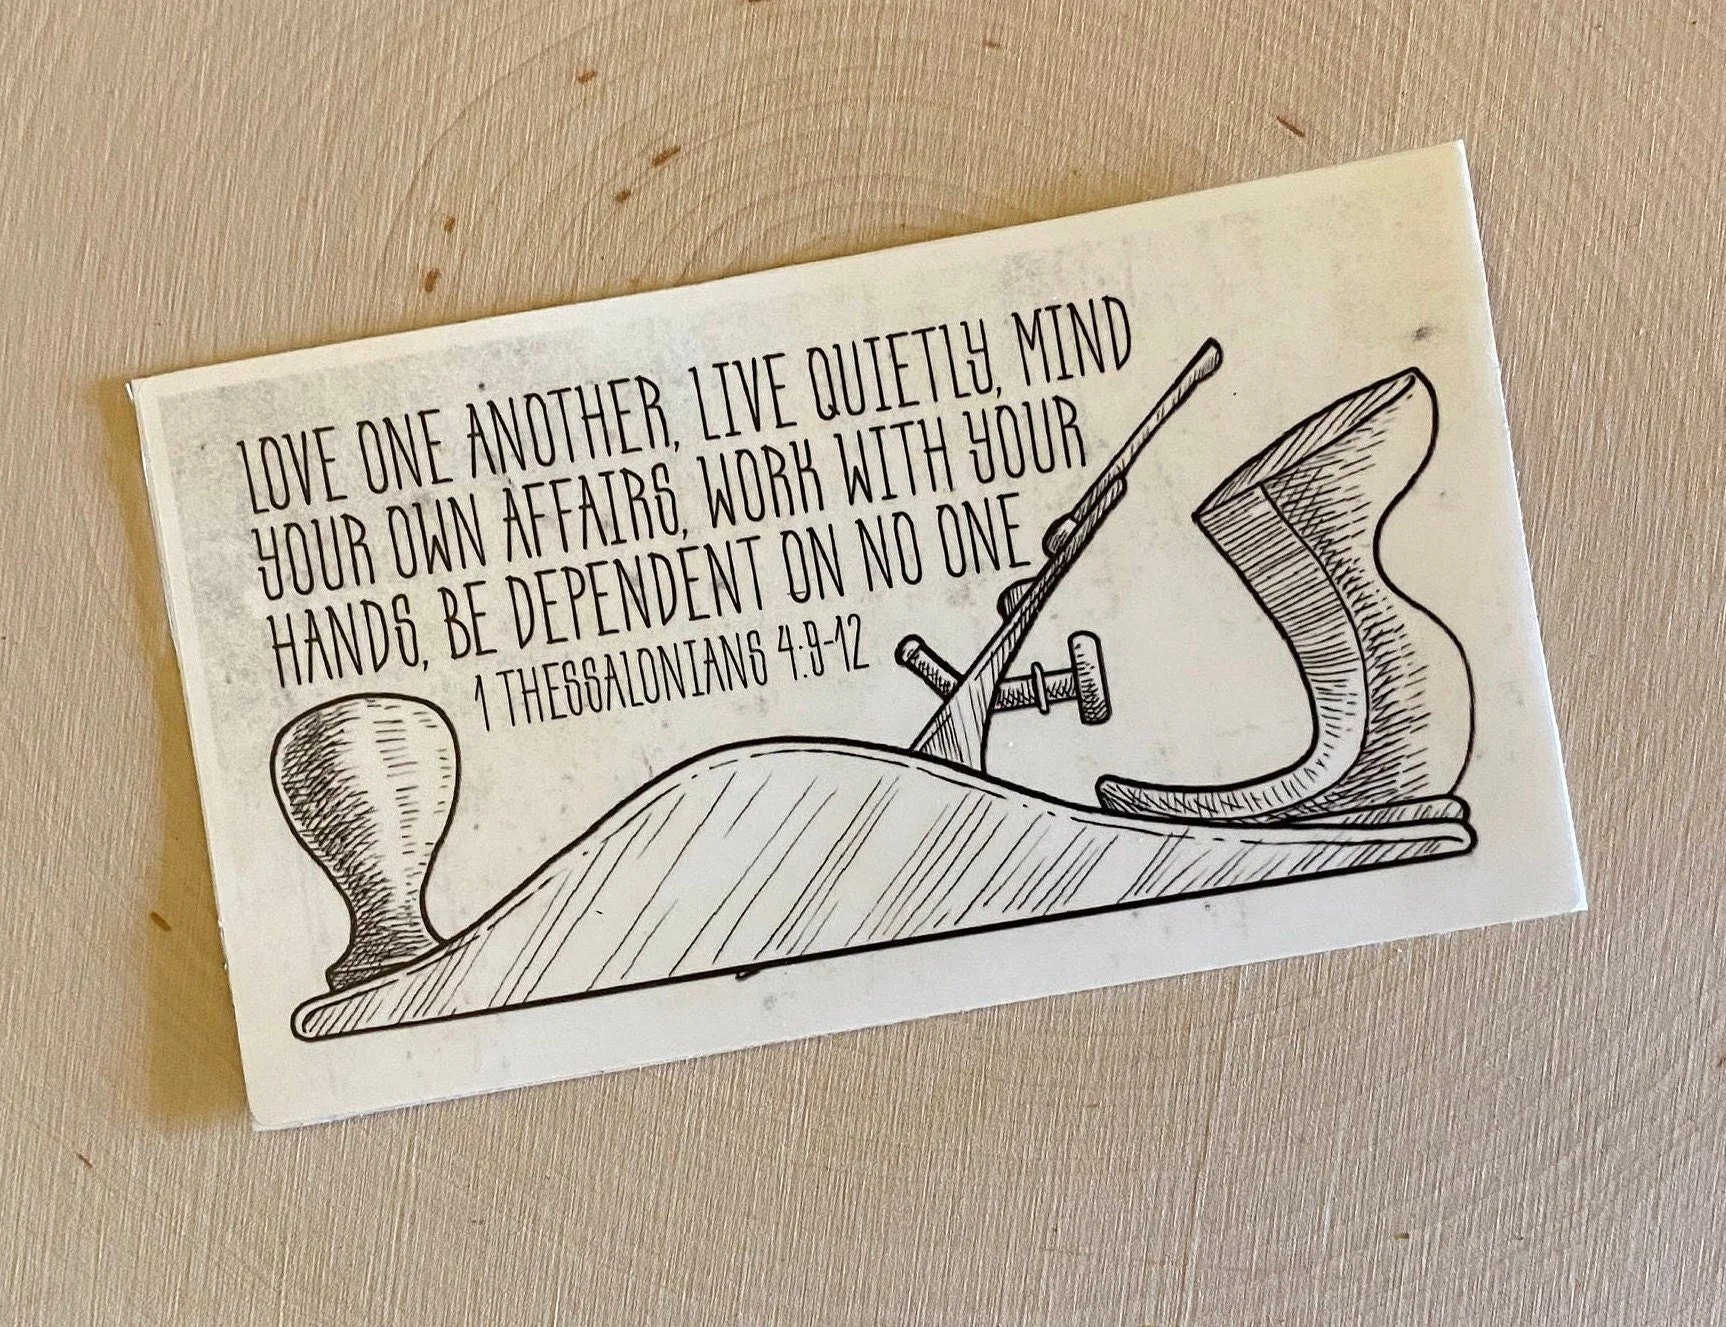 LOVE ONE ANOTHER, LIVE QUIETLY, MIND
YOUR OWN AFFAIRS, WORK WITH YOUR
HANDS, BE DEPENDENT ON NO ONE
1 THESSALONIANS 4:9-12